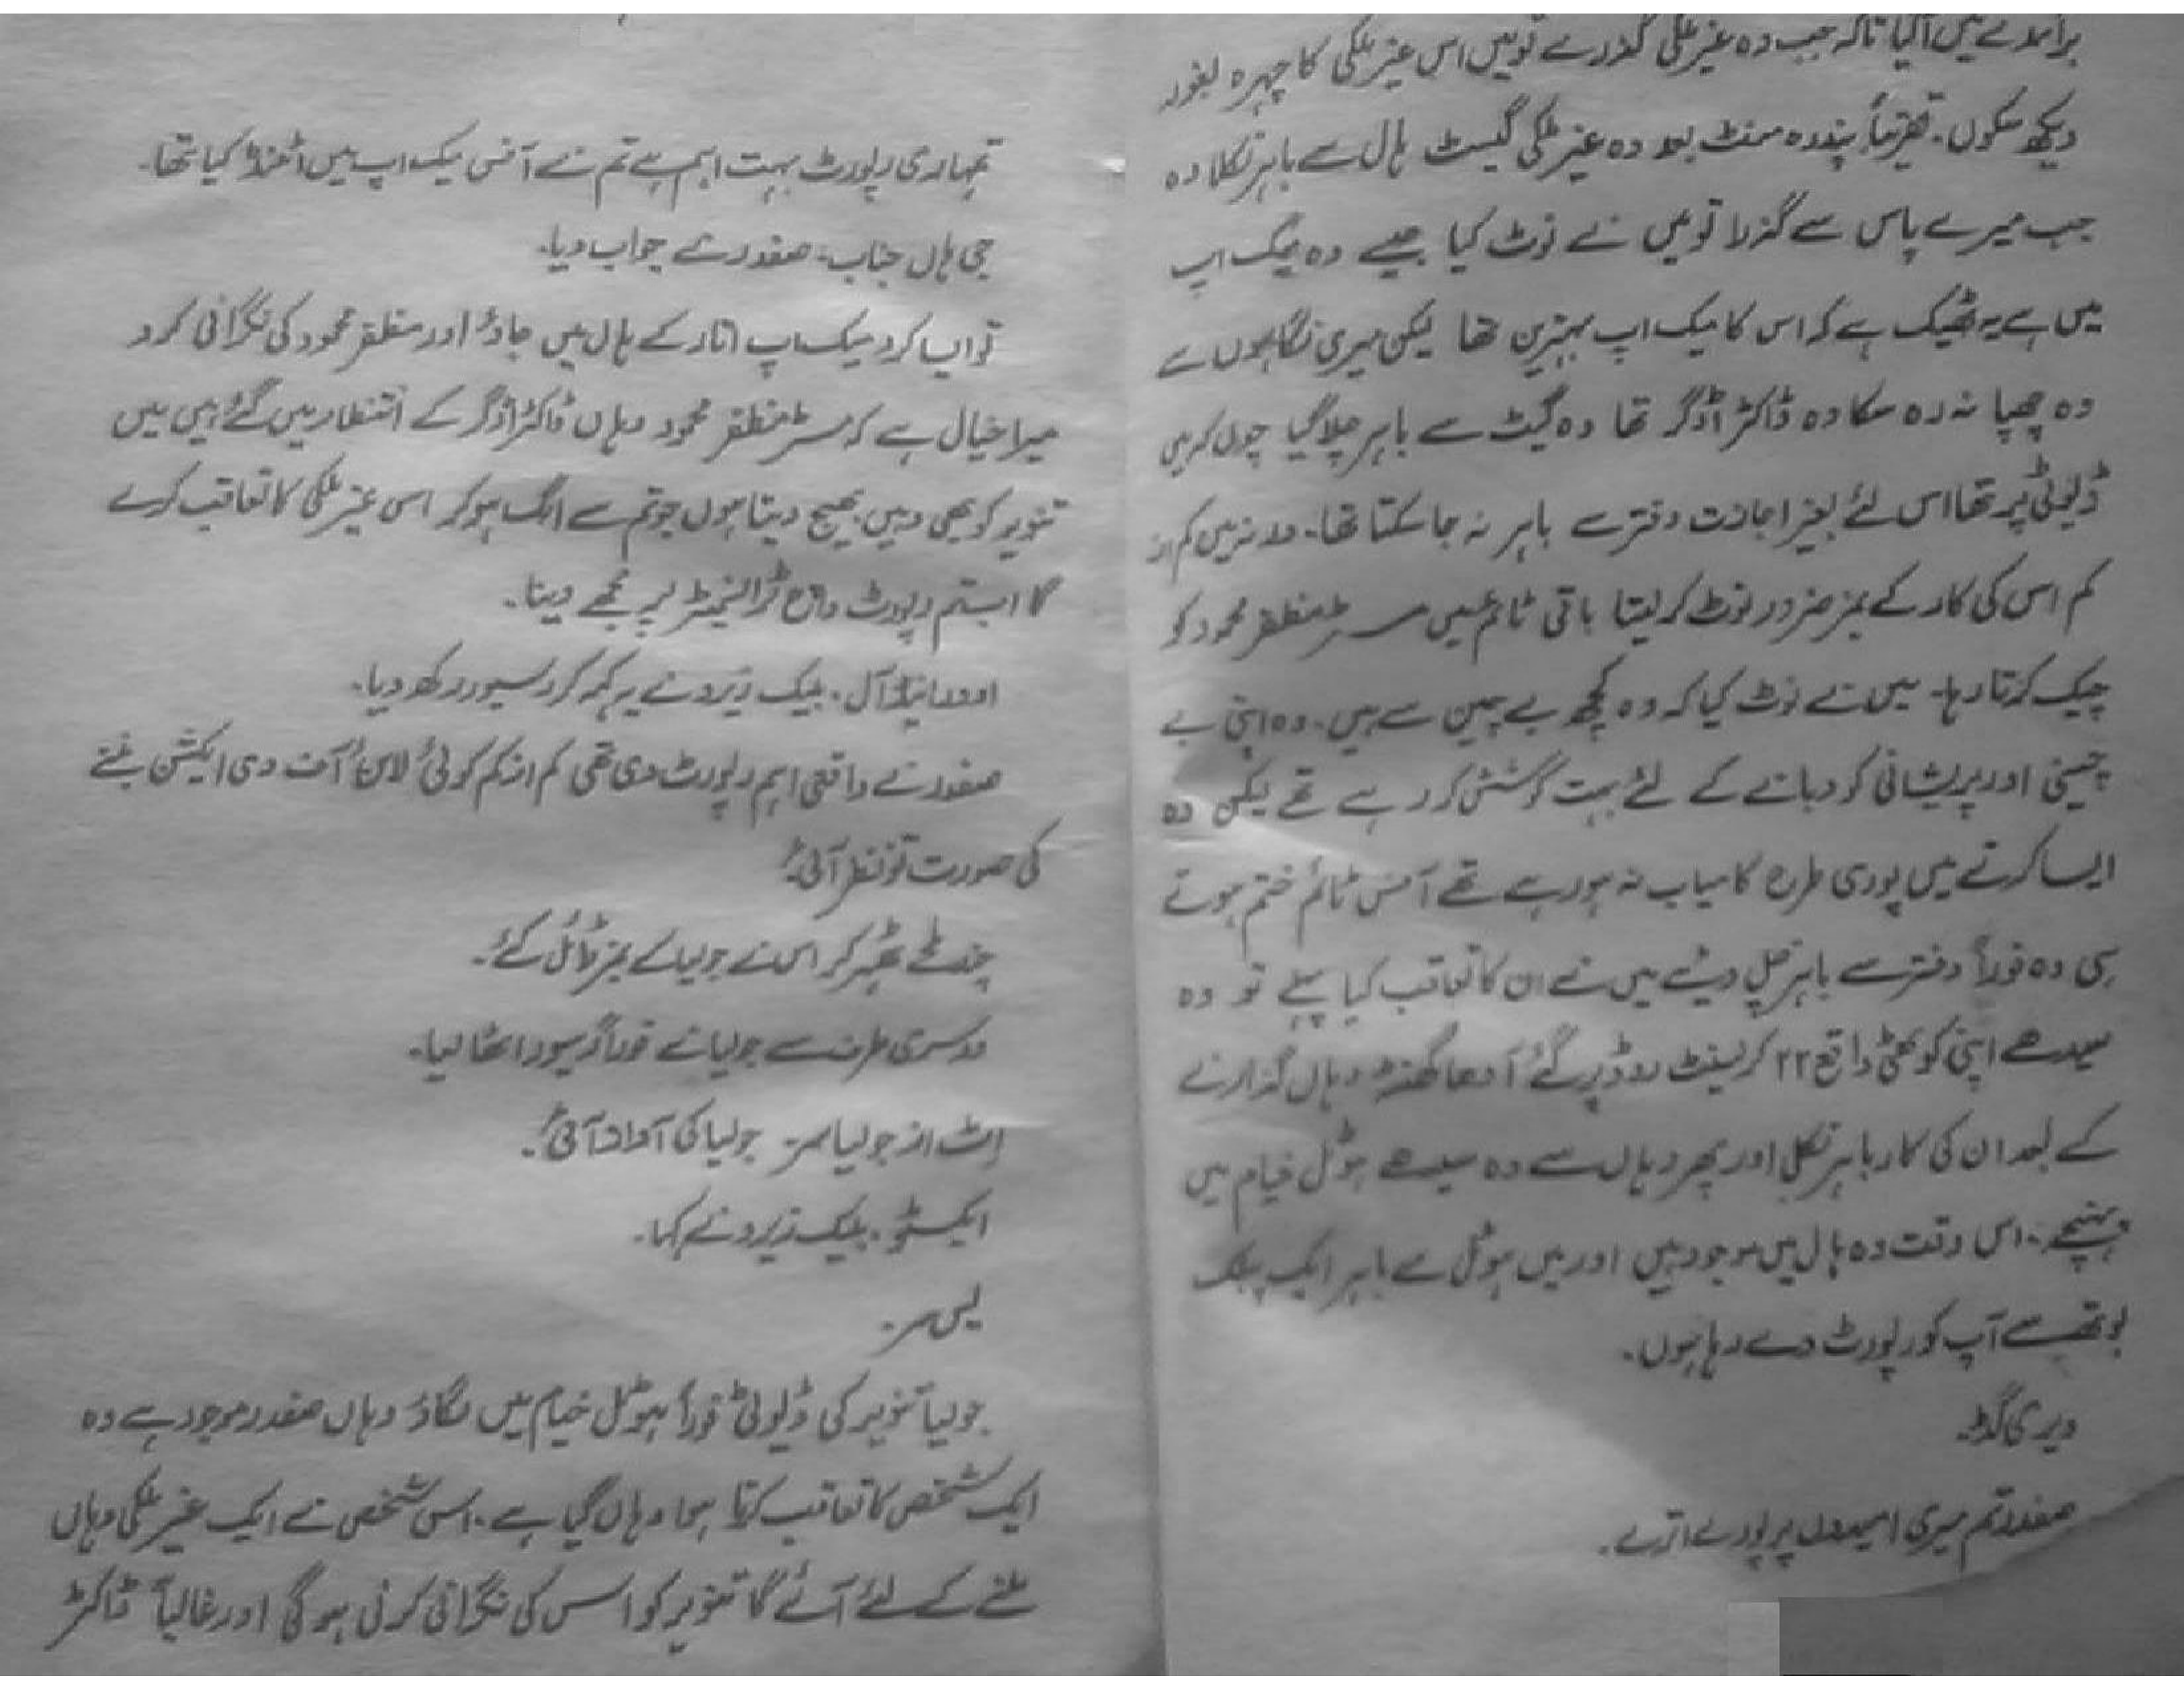 برآمدے میں آگیا تاکہ جب وہ غیر ملکی گذرے تو میں اس غیر ملکی کا چہرہ بغور
دیکھ سکوں۔ تقریباً پندرہ منٹ بعد وہ غیر ملکی گیسٹ ہال سے باہر نکلا وہ
جب میرے پاس سے گذرا تو میں نے نوٹ کیا جیسے وہ میک اپ
میں ہے یہ ٹھیک ہے کہ اس کا میک اپ بہترین تھا لیکن میری نگاہوں سے
وہ چھپا نہ رہ سکا وہ ڈاکٹر اڈگر تھا وہ گیٹ سے باہر چلا گیا چوں کہ میں
ڈیوٹی پر تھا اس لئے بغیر اجازت دفتر سے باہر نہ جا سکتا تھا۔ ورنہ میں کم از
کم اس کی کار کے نمبر ضرور نوٹ کر لیتا باقی ٹائم میں مسٹر مظفر محمود کو
چیک کرتا رہا۔ میں نے نوٹ کیا کہ وہ کچھ بے چین سے ہیں۔ وہ اپنی بے
چینی اور پریشانی کو دبانے کے لئے بہت کوشش کر رہے تھے لیکن وہ
ایسا کرنے میں پوری طرح کامیاب نہ ہو رہے تھے آفس ٹائم ختم ہوتے
ہی وہ فوراً دفتر سے باہر چل دیئے میں نے ان کا تعاقب کیا پہلے تو وہ
سیدھے اپنی کوٹھی واقع ۲۲ کرلینٹ روڈ پر گئے آدھا گھنٹہ وہاں گذارنے
کے بعد ان کی کار باہر نکلی اور پھر وہاں سے وہ سیدھے ہوٹل خیام میں
پہنچے۔ اس وقت وہ ہال میں موجود ہیں اور میں ہوٹل سے باہر ایک پبلک
بوتھ سے آپ کو رپورٹ دے رہا ہوں۔
ویری گڈ۔
صفدر تم میری امیدوں پر پورے اترے۔
تمہاری رپورٹ بہت اہم ہے تم نے آفس میک اپ میں اٹنڈ کیا تھا۔
جی ہاں جناب۔ صفدر نے جواب دیا۔
تو ایسا کرو میک اپ اتار کے ہال میں جاؤ اور مظفر محمود کی نگرانی کرو
میرا خیال ہے کہ مسٹر مظفر محمود وہاں ڈاکٹر اڈگر کے انتظار میں گئے ہیں میں
تنویر کو بھی وہیں بھیج دیتا ہوں جو تم سے الگ ہو کر اسی غیر ملکی کا تعاقب کرے
گا اب تم رپورٹ واچ ٹرانسمیٹر پر مجھے دینا۔
اوور اینڈ آل۔ بلیک زیرو نے یہ کہہ کر رسیور رکھ دیا۔
صفدر نے واقعی اہم رپورٹ دی تھی کم از کم کوئی لائن آف دی ایکشن بننے
کی صورت تو نظر آئی۔
چند لمحے ٹھہر کر اس نے جولیا کے نمبر ڈائل کئے۔
دوسری طرف سے جولیا نے فوراً رسیور اٹھا لیا۔
اٹ از جولیا سر۔ جولیا کی آواز آئی۔
ایکسٹو۔ بلیک زیرو نے کہا۔
یس سر۔
جولیا تنویر کی ڈیوٹی فوراً ہوٹل خیام میں لگاؤ وہاں صفدر موجود ہے وہ
ایک شخص کا تعاقب کرتا ہوا وہاں گیا ہے۔ اسی شخص نے ایک غیر ملکی وہاں
ملنے کے لئے آئے گا تنویر کو اس کی نگرانی کرنی ہو گی اور غالباً ڈاکٹر